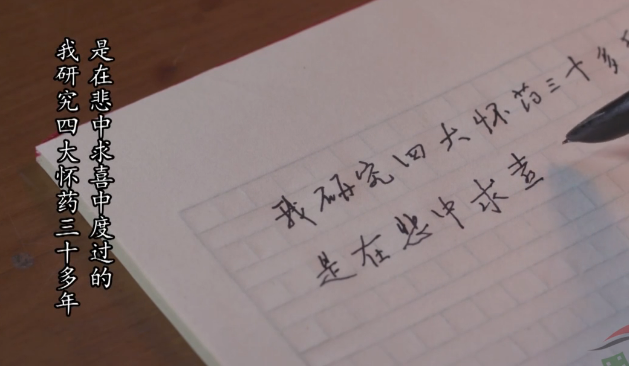 我研究四大怀药三十多年
是在悲中求喜中度过的
我研究四大怀药三十多
是在悲中求